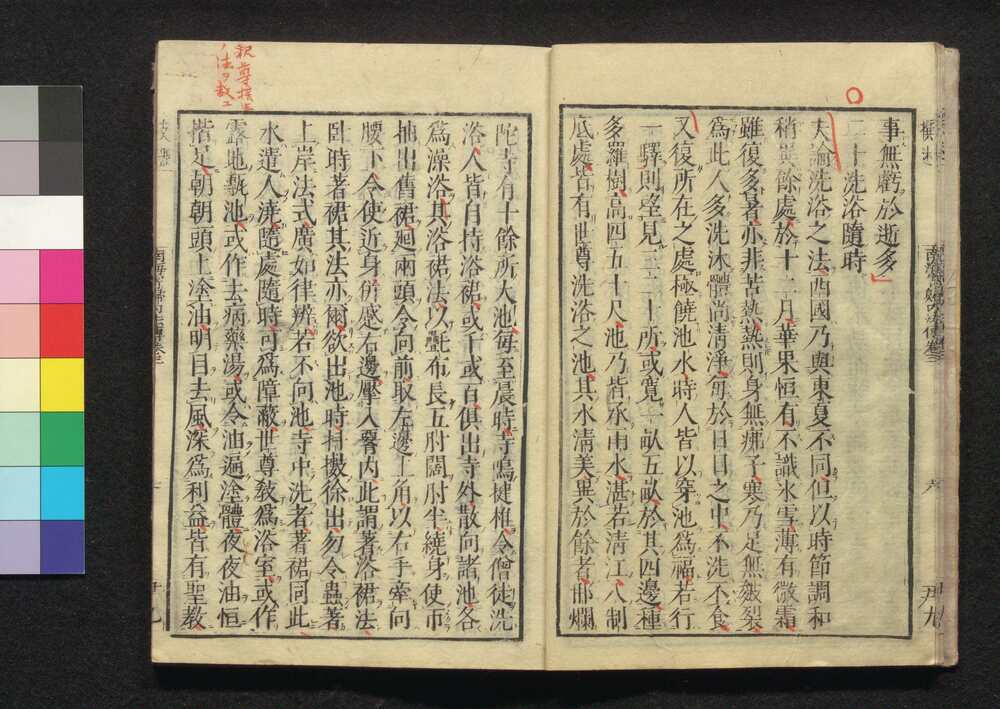 事無虧於逝多
二十洗浴隨時
夫論洗浴之法西國乃與東夏不同但以時節調和
稍異餘處於十二月華果恒有不識氷雪薄有微霜
雖復多暑亦非苦熱熱則身無疿子寒乃足無皴裂
為此人多洗沐體尚清淨每於日日之中不洗不食
又復所在之處極饒池水時人皆以穿池為福若行
一驛則望見二十所或寬一畝五畝於其四邊種
多羅樹高四五十尺池乃皆承雨水湛若清江八制
底處皆有世尊洗浴之池其水清美異於餘者那爛
陀寺有十餘所大池每至晨時寺鳴犍椎令僧徒洗
浴人皆自持浴裙或千或百俱出寺外散向諸池各
為澡浴其浴裙法以氎布長五肘闊肘半繞身使帀
抽出舊裙廻兩頭令向前取左邊上角以右手牽向
腰下令使近身併蹙右邊壓入腰內此謂著浴裙法
臥時著裙其法亦爾欲出池時抖擻徐出勿令蟲著
上岸法式廣如律辨若不向池寺中洗者著裙同此
水遣人澆隨處隨時可為障蔽世尊敎為浴室或作
露地甎池或作去病藥湯或令油遍塗體夜夜油恒
揩足朝朝頭上塗油明目去風深為利益皆有聖敎